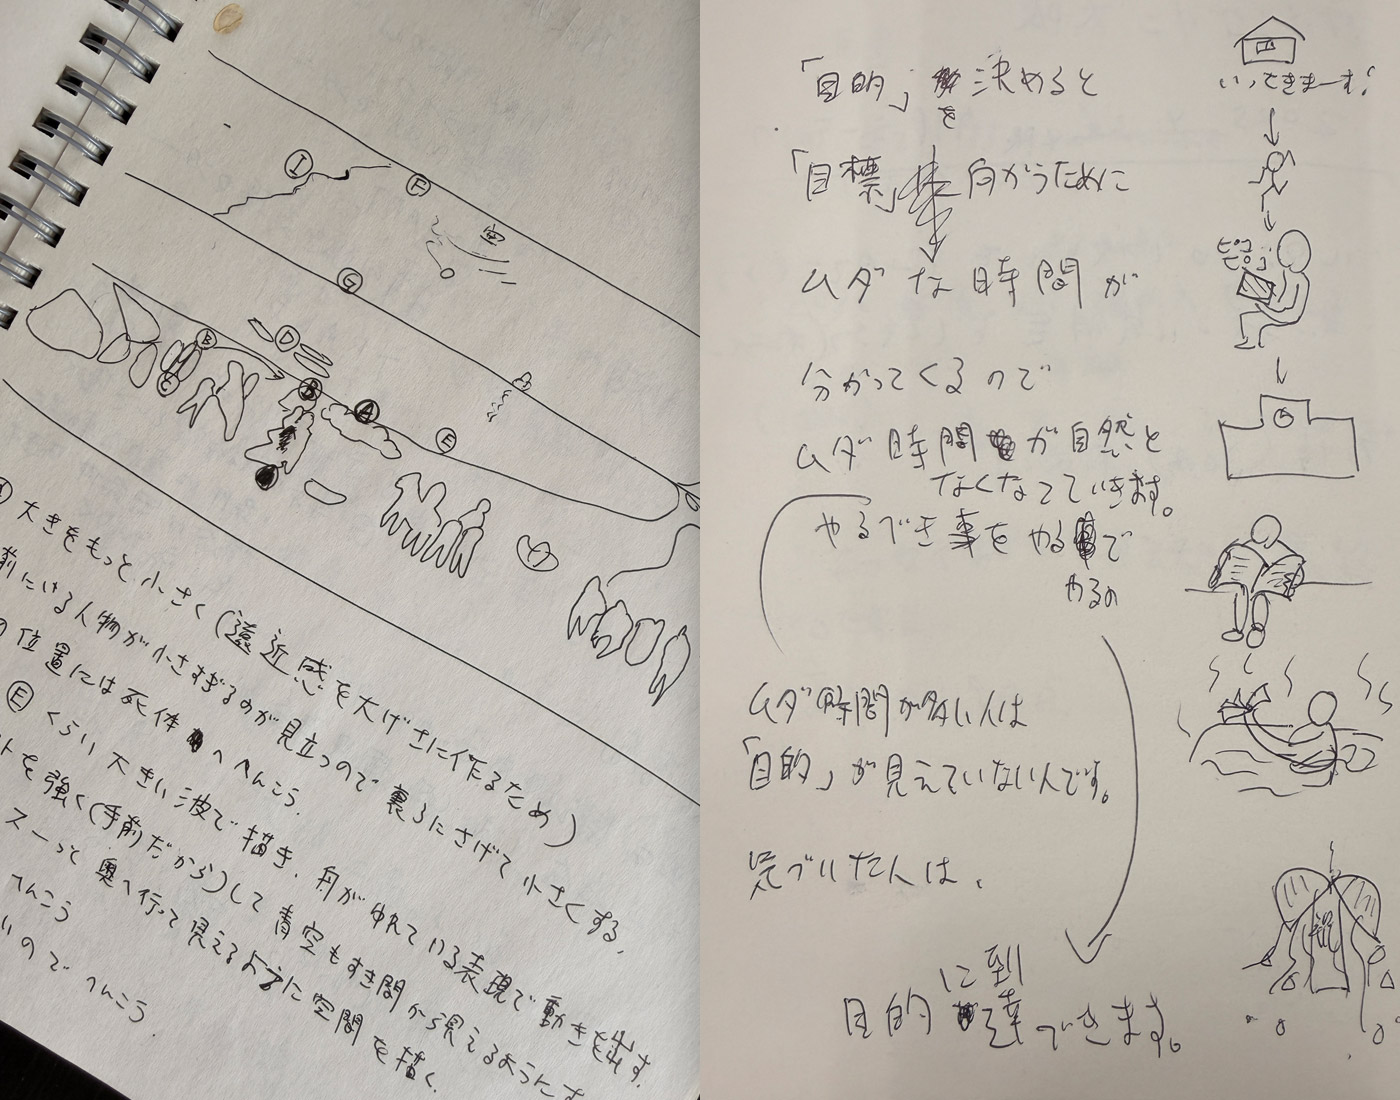 I
F
空
G
D
B
C
B
A
E
大きをもっと小さく(遠近感を大げさに作るため)
前にいる人物が小さすぎるのが見立つので裏ろにさげて小さくする,
の位置には死体へへんこう.
E くらい大きい波で描き,舟がゆれている表現で動きを出す.
トを強く(手前だから)して青空もすき間から見えるように
スーっと奥へ行って見えるように空間を描く.
へんこう
いのでへんこう.
「目的」を決めると
「目標」向かうために
ムダな時間が
分かってくるので
ムダ時間が自然と
なくなっていきます。
やるべき事をやるで
やるの
ムダ時間が多い人は
「目的」が見えていない人です。
気づいた人は、
に到
目的達できます。
いってきまーす!
ピコ
ピコ